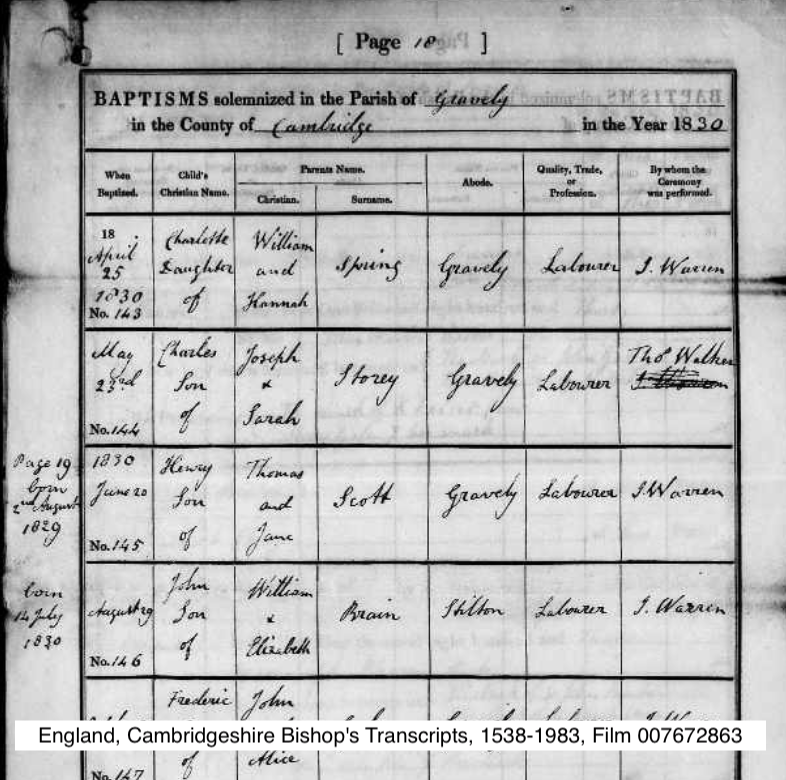 [ Page 18 ]
BAPTISMS solemnized in the Parish of Gravely
in the County of Cambridge in the Year 1830
When Baptized.
Child's Christian Name.
Parents Name.
Christian.
Surname.
Abode.
Quality, Trade, or Profession.
By whom the Ceremony was performed.
18
April 25 1830
No. 143
Charlotte Daughter of
William and Hannah
Spring
Gravely
Labourer
J. Warren
May 23rd
No. 144
Charles Son of
Joseph & Sarah
Storey
Gravely
Labourer
Thos Walker
Page 19
born
2nd August
1829
1830
June 20
No. 145
Henry Son of
Thomas and Jane
Scott
Gravely
Labourer
J. Warren
born
14 July
1830
August 29
No. 146
John Son of
William & Elizabeth
Brain
Stilton
Labourer
J. Warren
No. 147
Frederic
of
John
Alice
England, Cambridgeshire Bishop's Transcripts, 1538-1983, Film 007672863